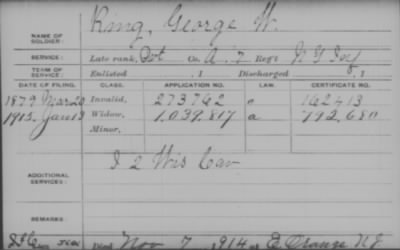 King, George W.
NAME OF SOLDIER:
SERVICE: Late rank, Pvt Co. A. 7 Reg't N Y Inf
TERM OF SERVICE: Enlisted , 1 Discharged , 1
DATE OF FILING. CLASS. APPLICATION NO. LAW. CERTIFICATE NO.
1879. Mar 20 Invalid, 273762 162413
1915. Jan 13 Widow, 1,039.817 a 792,680
Minor,
ADDITIONAL SERVICES: I 2 Wis Cav
REMARKS:
Died Nov 7, 1914 at E. Orange N J